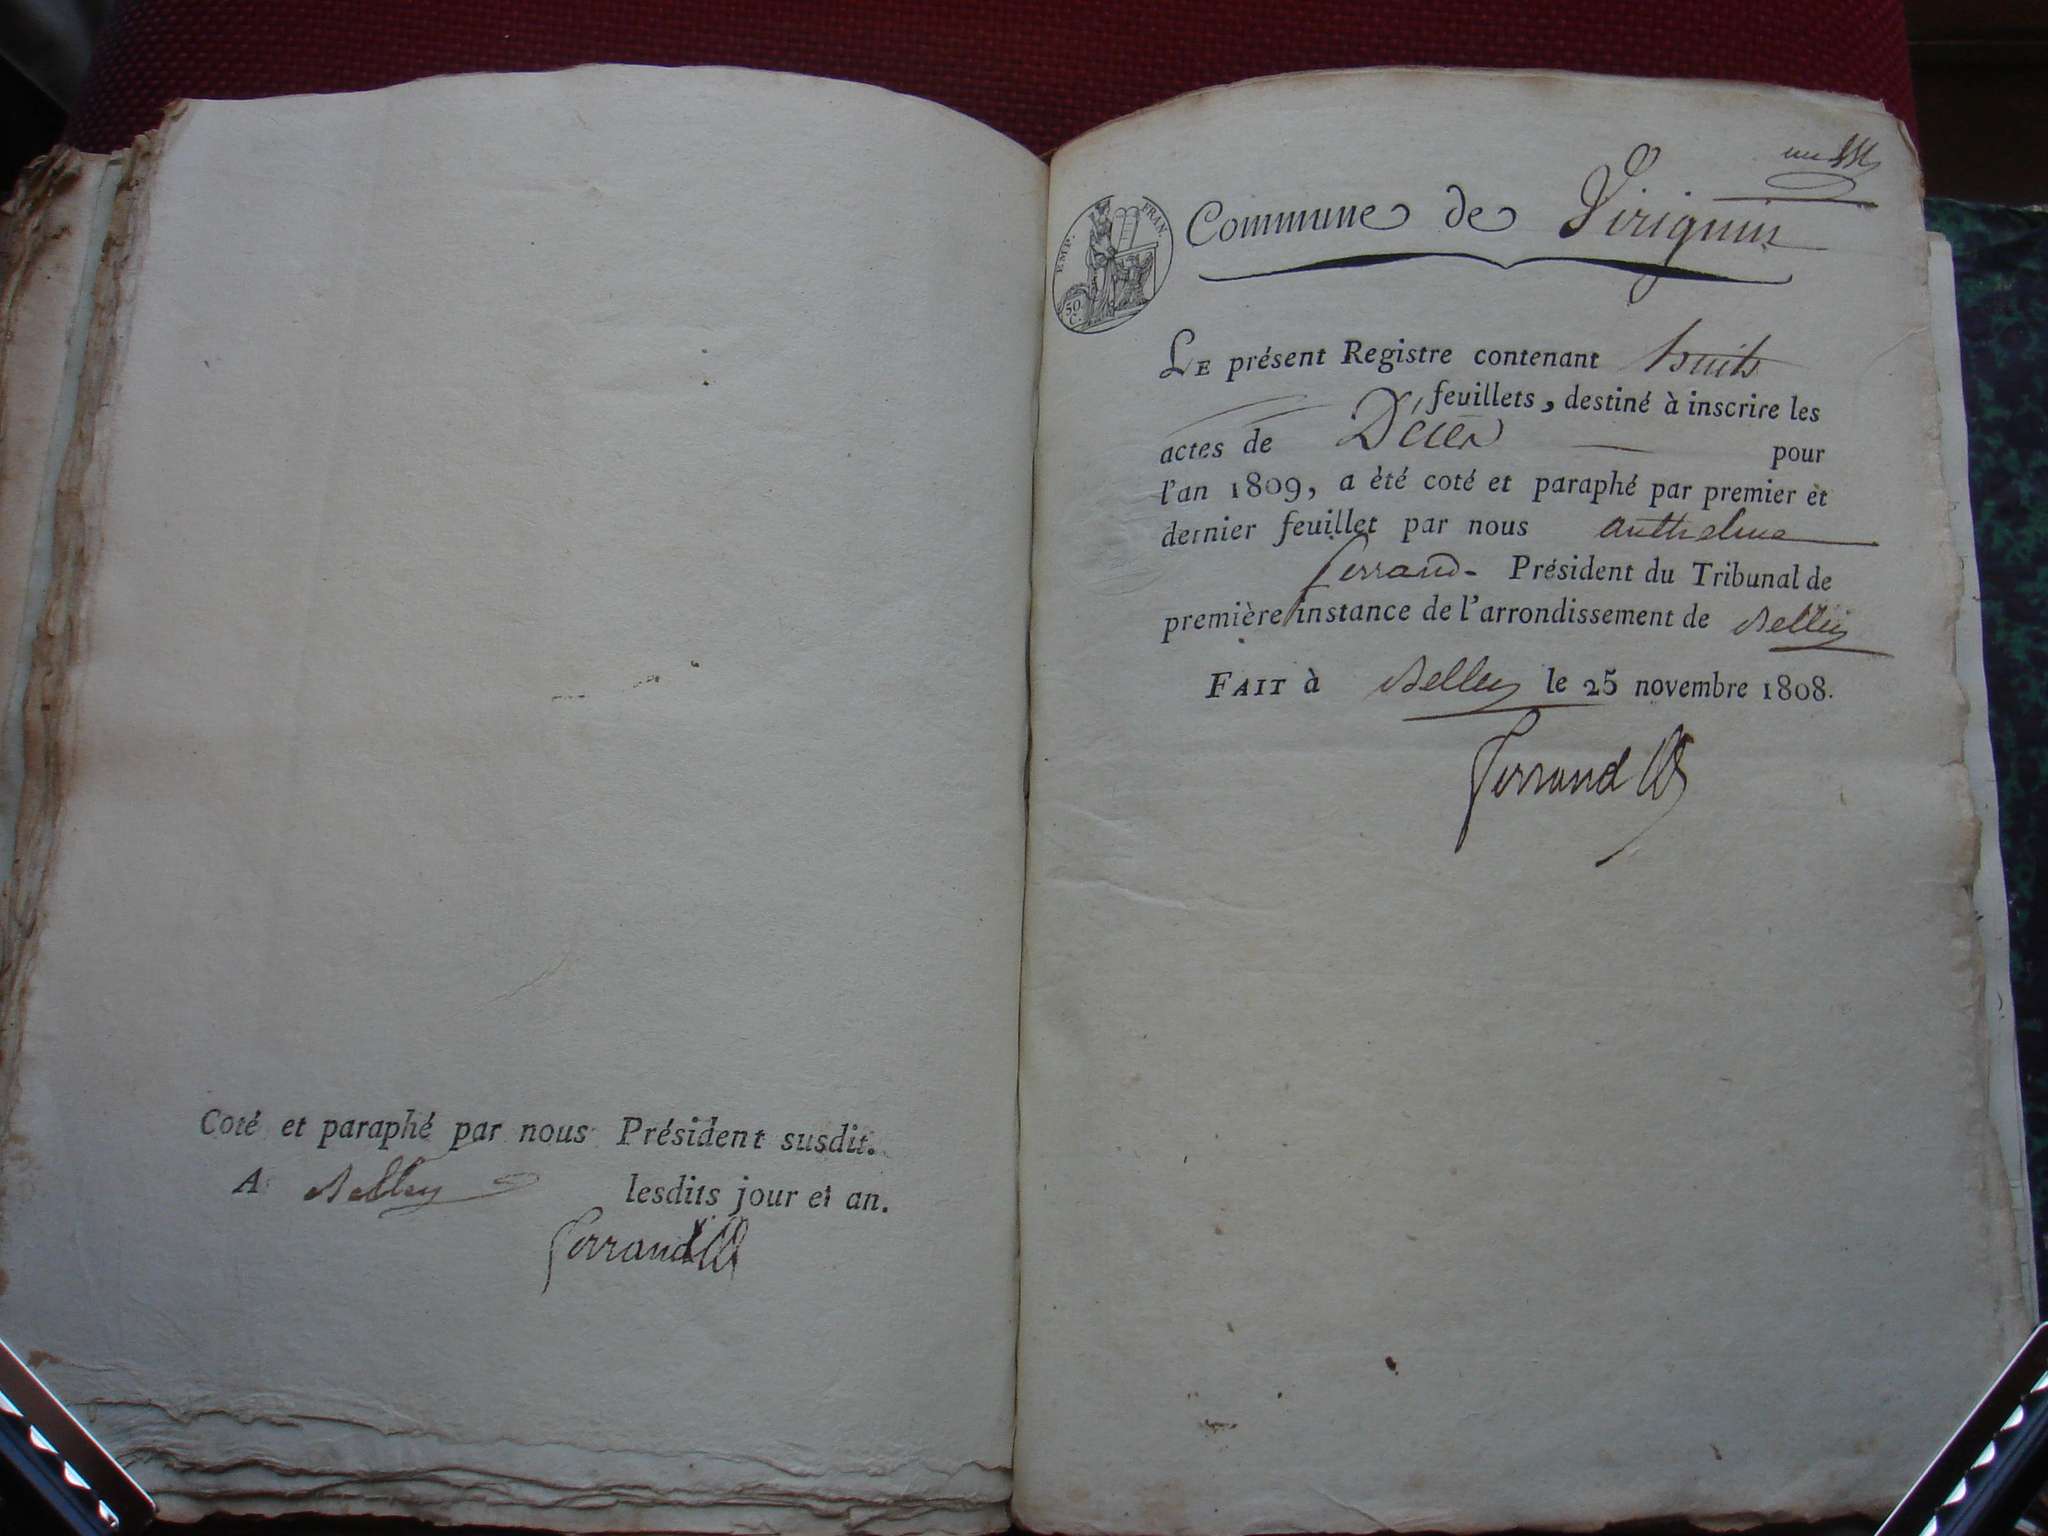 Coté et paraphé par nous Président susdit.
A Belley lesdits jour et an.
Ferrand
EMP. FRAN.
50
C.
Commune de Virignin
Le présent Registre contenant huit
feuillets, destiné à inscrire les
actes de Décès pour
l'an 1809, a été coté et paraphé par premier et
dernier feuillet par nous anthelme
ferrand - Président du Tribunal de
première instance de l'arrondissement de Belley
FAIT à Belley le 25 novembre 1808.
Ferrand